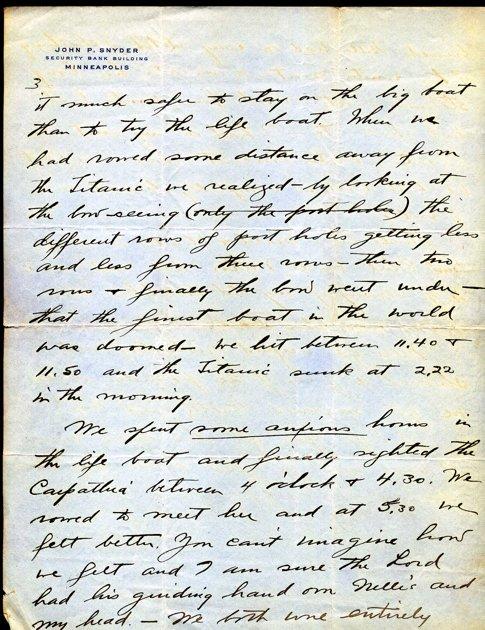 JOHN P. SNYDER
SECURITY BANK BUILDING
MINNEAPOLIS
3
it much safer to stay on the big boat
than to try the life boat. When we
had rowed some distance away from
the Titanic we realized – by looking at
the bow – seeing (only the port holes) the
different rows of port holes getting less
and less from three rows – then two
rows & finally the bow went under –
that the finest boat in the world
was doomed – we hit between 11.40 &
11.50 and the Titanic sunk at 2.22
in the morning.
We spent some anxious hours in
the life boat and finally sighted the
Carpathia between 4 o'clock & 4.30. We
rowed to meet her and at 5.30 we
felt better. You can't imagine how
we felt and I am sure the Lord
had his guiding hand over Nelle's and
my head. – We both were entirely